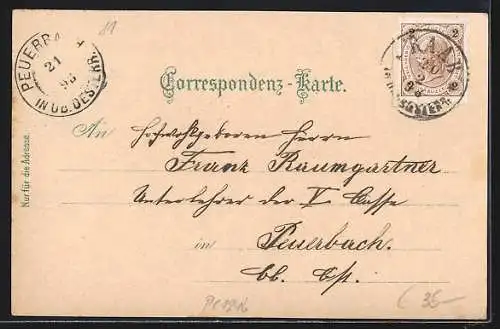 81
PEUERBACH
21
98
IN OB. OESTERR.
2
RAAB
20
2
98
Correspondenz-Karte.
Nur für die Adresse.
An Hochwohlgeboren Herrn
Franz Baumgartner
Unterlehrer der V. Classe
in Peuerbach.
Ob. Öst.
35-